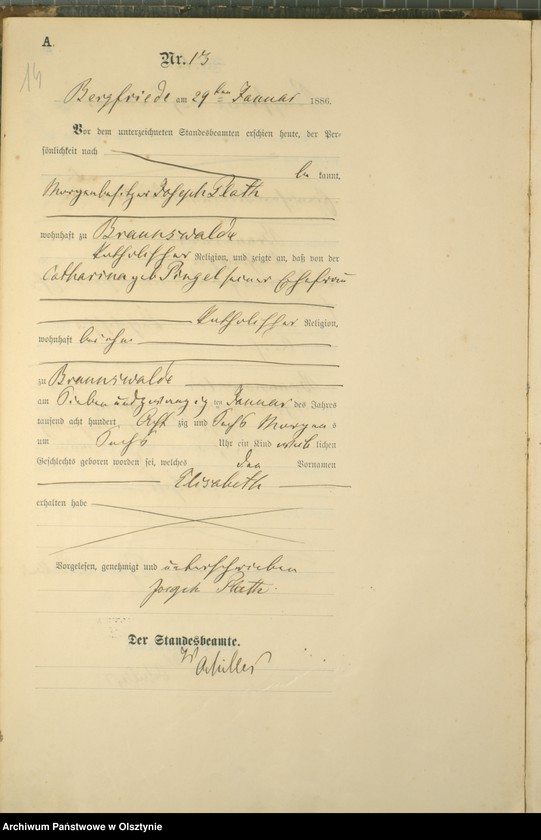 A.
14
Nr. 13
Bergfriede am 29ten Januar 1886.
Vor dem unterzeichneten Standesbeamten erschien heute, der Per-
sönlichkeit nach
be kannt,
Morgenbesitzer Joseph Plath
wohnhaft zu Braunswalde
katholischer Religion, und zeigte an, daß von der
Catharina geb Pingel seiner Ehefrau
katholischer Religion,
wohnhaft bei ihm
zu Braunswalde
am Sieben und zwanzig ten Januar des Jahres
tausend acht hundert Acht zig und Sechs Morgens
um Sechs Uhr ein Kind weib lichen
Geschlechts geboren worden sei, welches den Vornamen
Elisabeth
erhalten habe
Vorgelesen, genehmigt und unterschrieben
Joseph Plath
Der Standesbeamte.
Archiwum Państwowe w Olsztynie